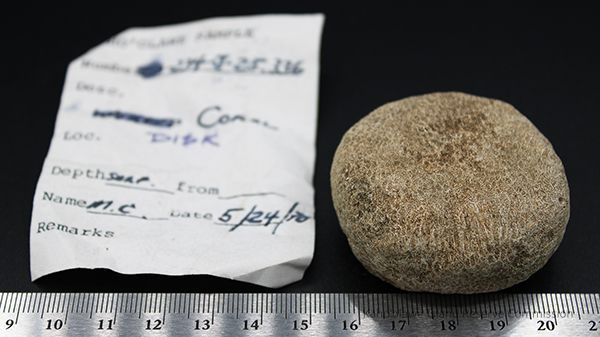 Number 24-J-25.336
Desc.
Coral
Loc. DISK
Depth SURF. from
Name M.C. Date 5/24/70
Remarks
9 10 11 12 13 14 15 16 17 18 19 20 21